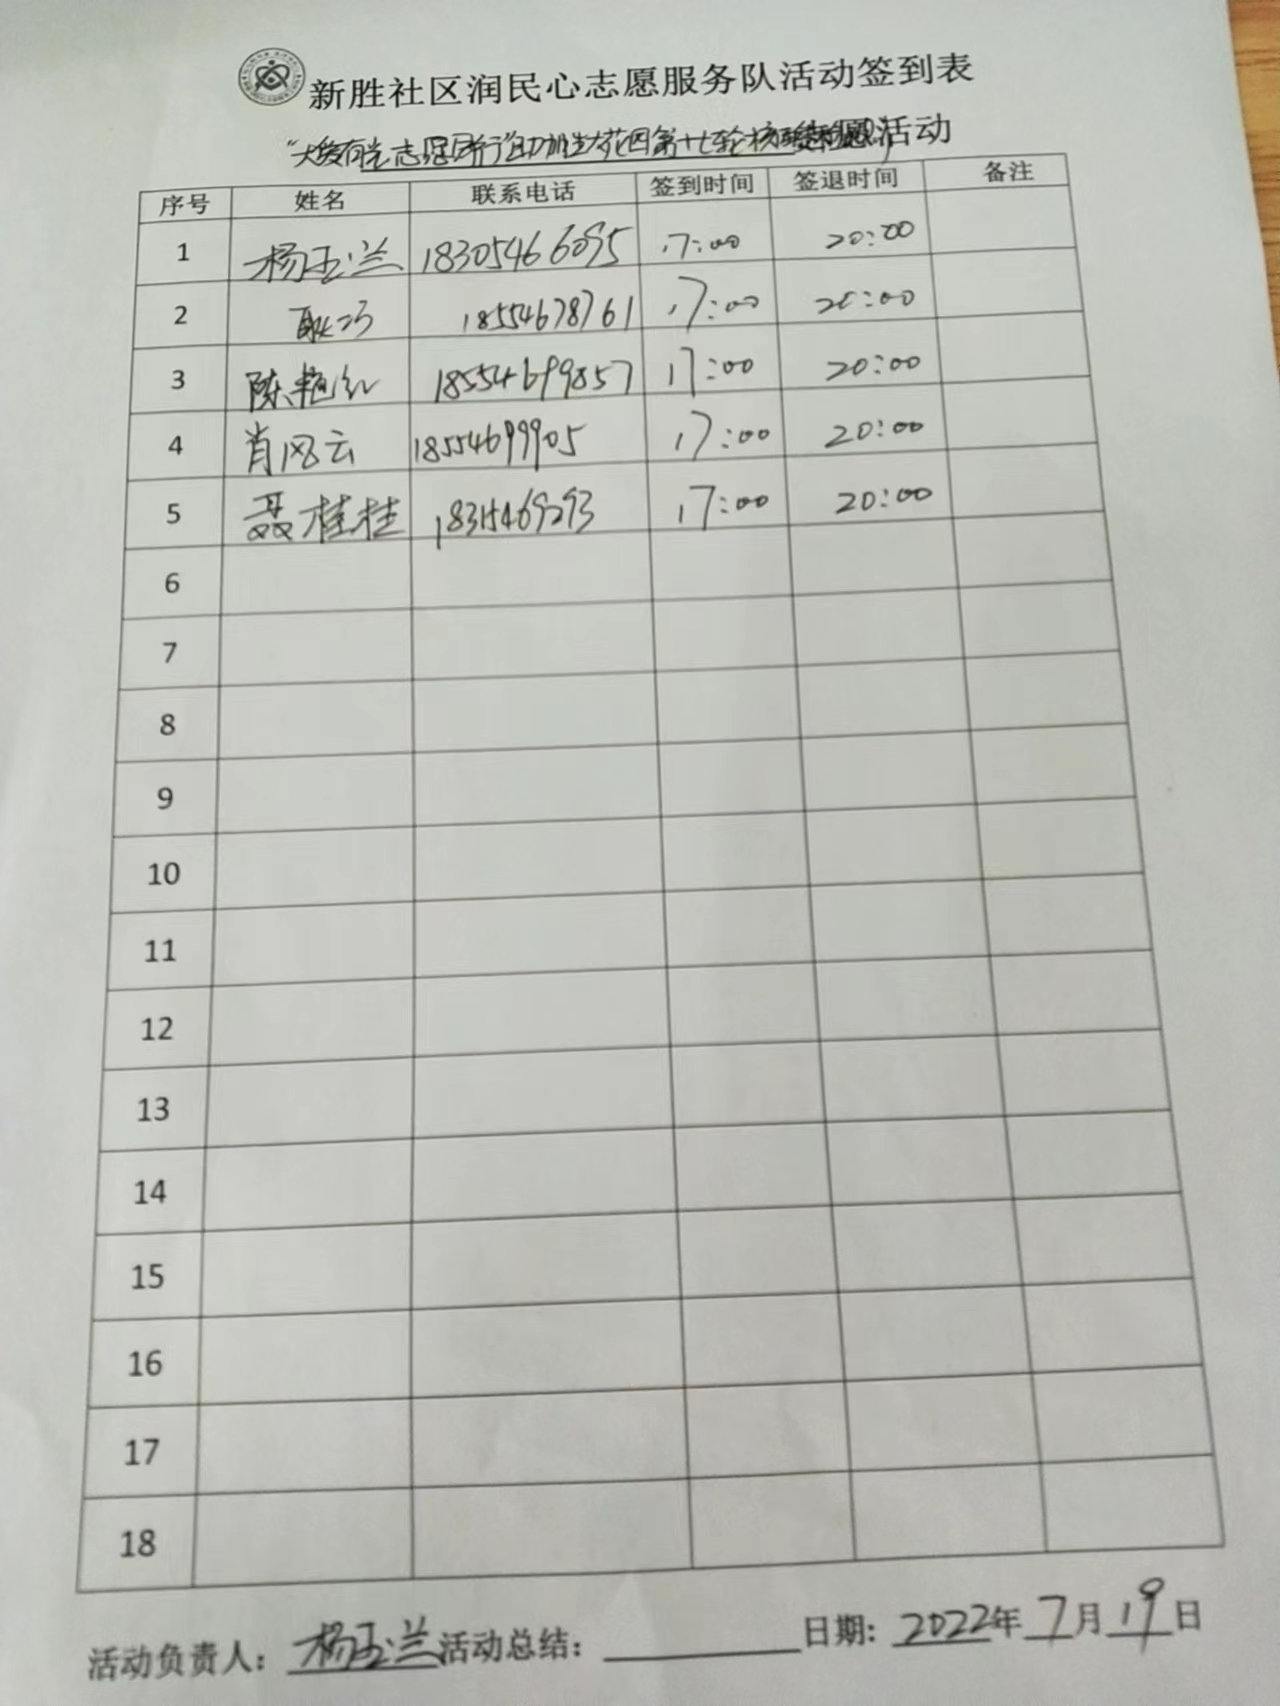 新胜社区润民心志愿服务队活动签到表
"大爱有光 志愿同行"自助班进大花园第十七轮核酸 志愿活动
序号 姓名 联系电话 签到时间 签退时间 备注
1 杨玉兰 18305466095 17:00 20:00
2 耿巧 18554678761 17:00 20:00
3 陈艳红 18554699857 17:00 20:00
4 肖风云 18554699905 17:00 20:00
5 聂桂桂 18315469293 17:00 20:00
6
7
8
9
10
11
12
13
14
15
16
17
18
活动负责人: 杨玉兰 活动总结: 日期: 2022年7月19日